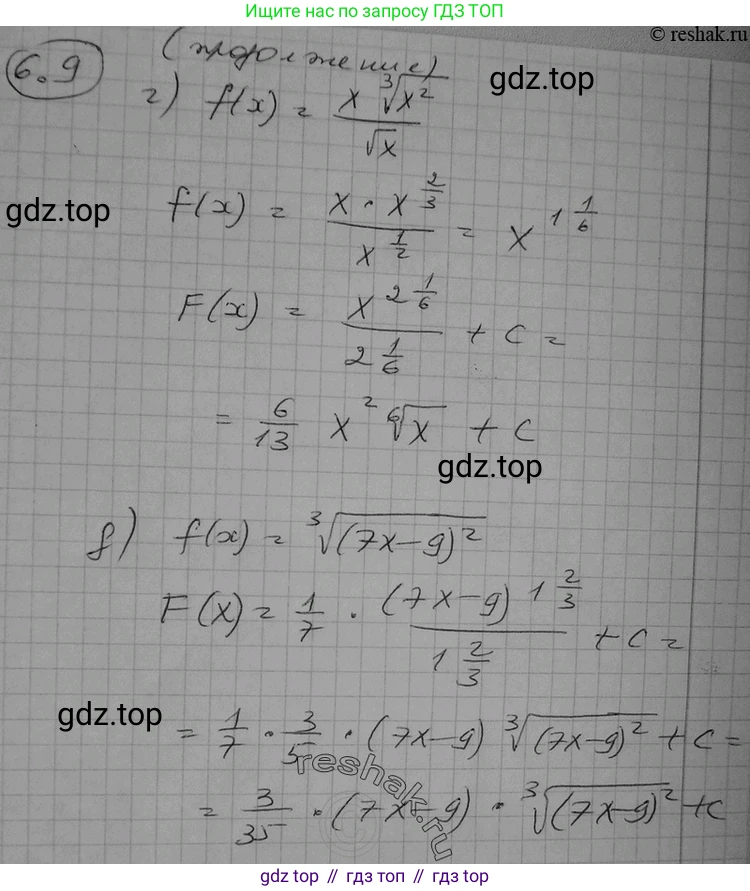 Ищите нас по запросу ГДЗ ТОП
© reshak.ru
6.9 (продолжение)
г) f(x) = x ∛x² / √x
gdz.top
gdz.top
f(x) = x · x^(2/3) / x^(1/2) = x^(1 1/6)
F(x) = x^(2 1/6) / (2 1/6) + C =
= 6/13 x² ⁶√x + C
gdz.top
д) f(x) = ∛(7x-9)²
F(x) = 1/7 · (7x-9)^(1 2/3) / (1 2/3) + C =
gdz.top
= 1/7 · 3/5 · (7x-9) ∛(7x-9)² + C =
reshak.ru
= 3/35 · (7x-9) · ∛(7x-9)² + C
gdz.top // гдз.топ // gdz.top